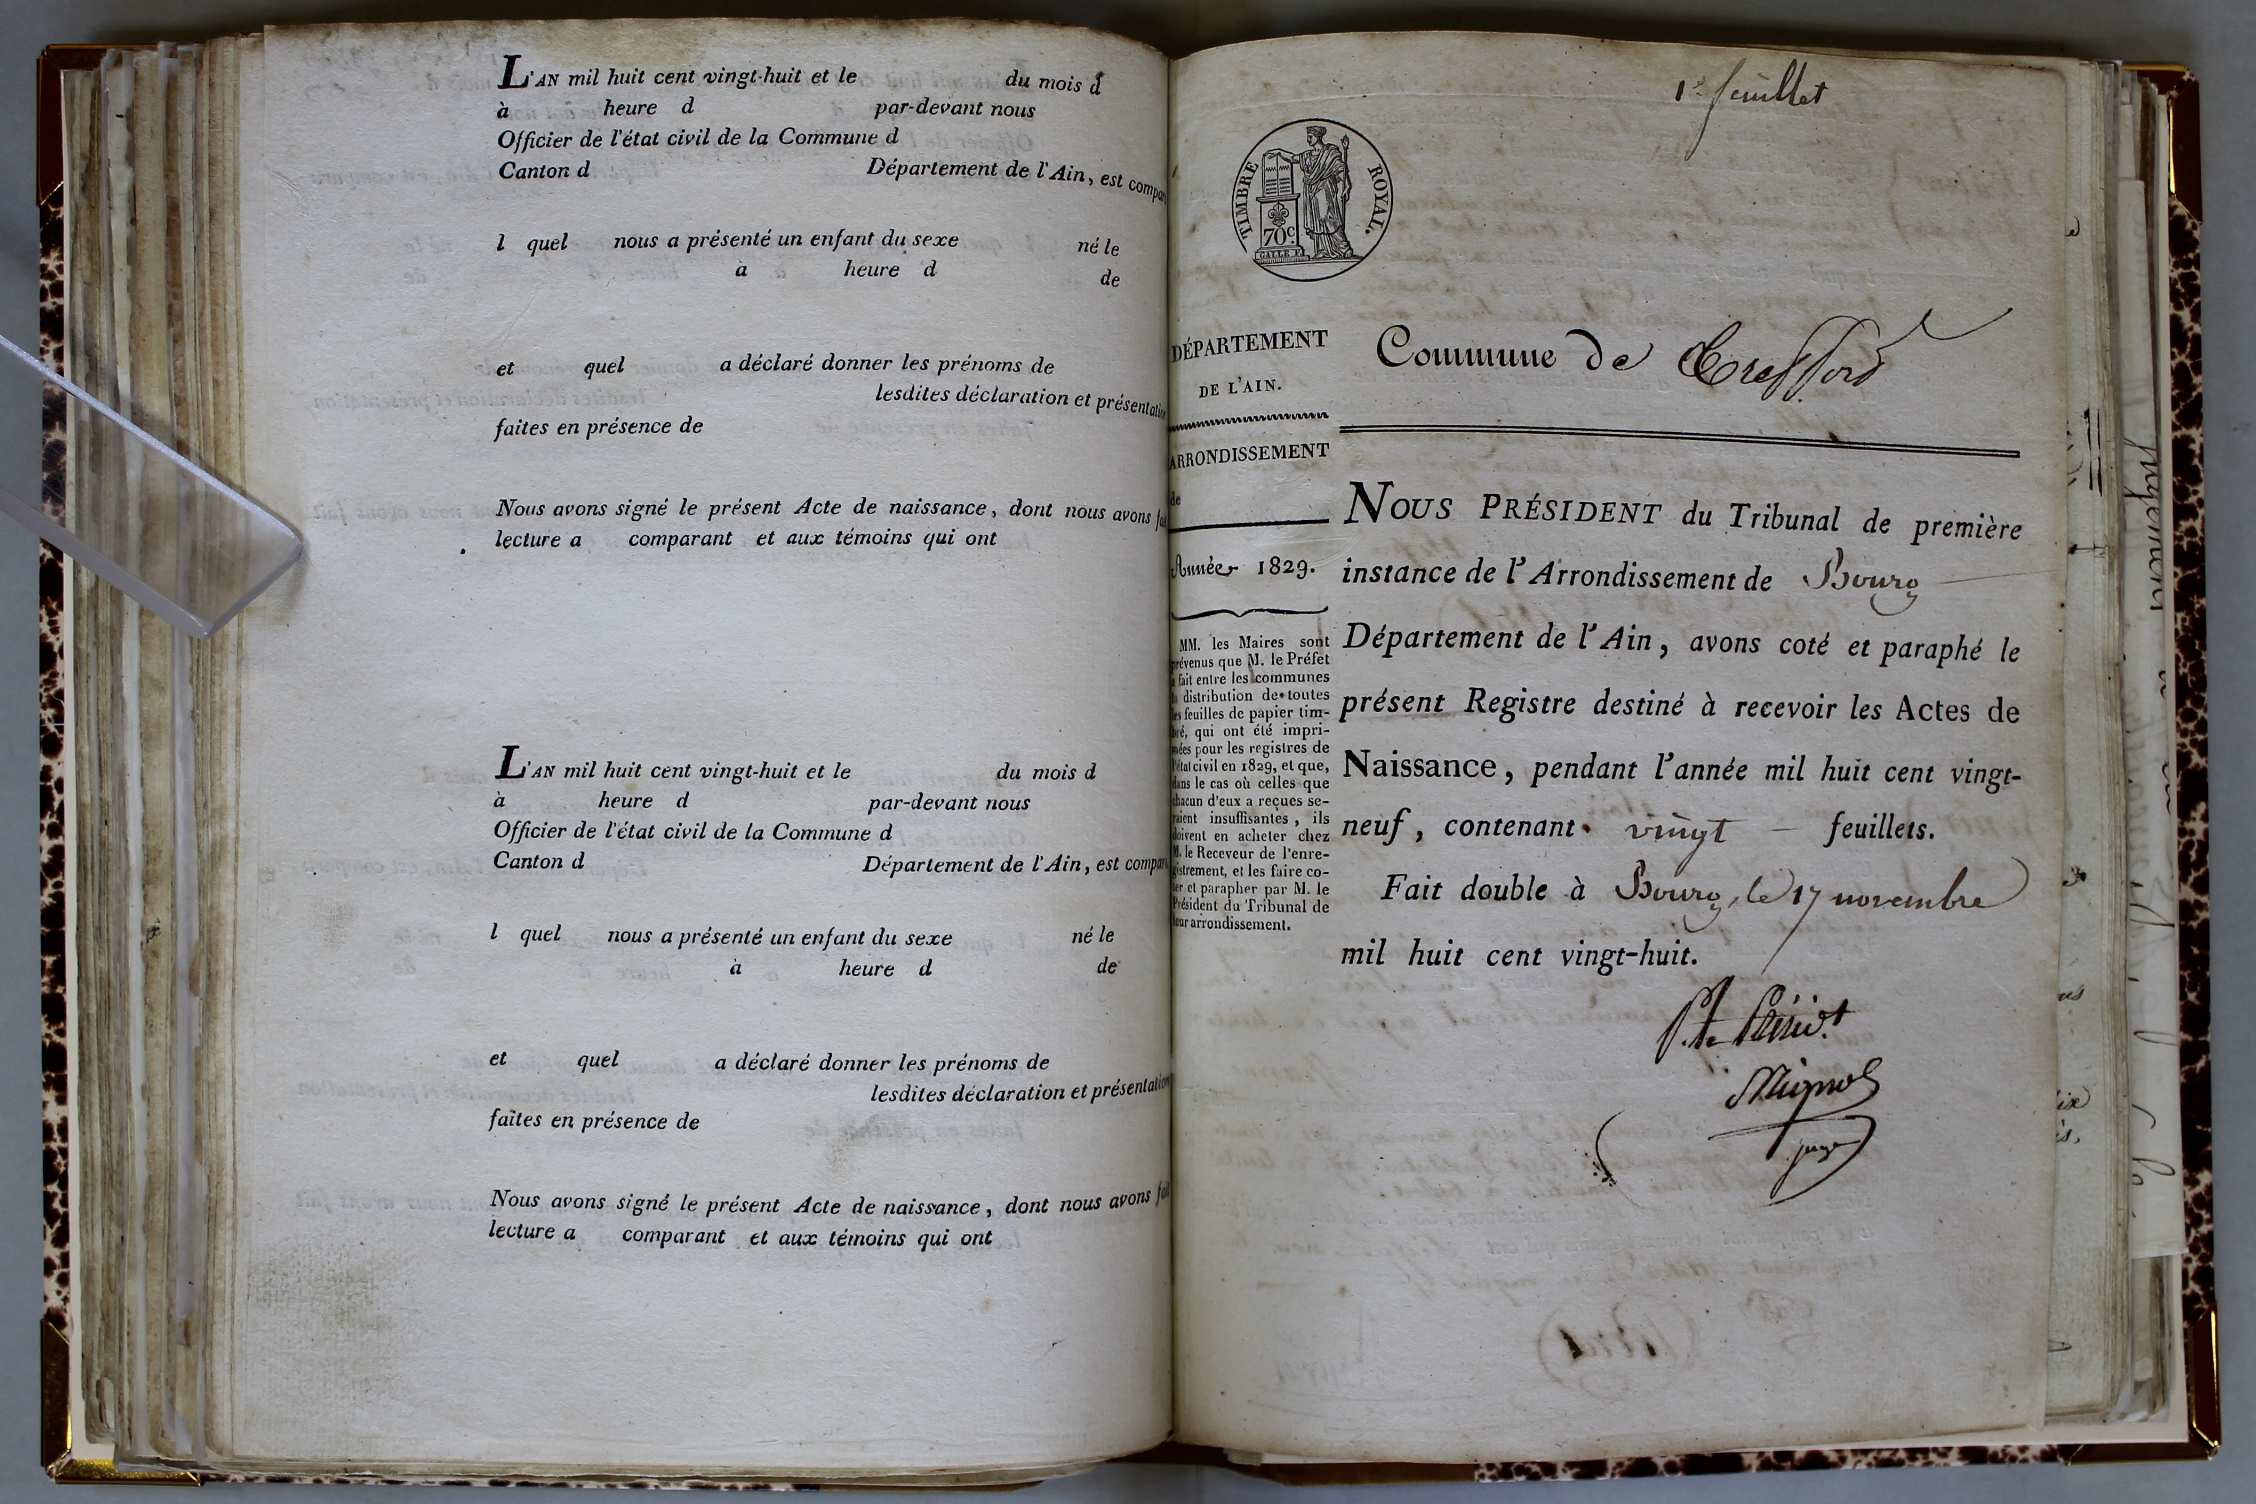 L'AN mil huit cent vingt-huit et le du mois d
à heure d par-devant nous
Officier de l'état civil de la Commune d
Canton d Département de l'Ain, est compar
l quel nous a présenté un enfant du sexe né le
à heure d de
et quel a déclaré donner les prénoms de
lesdites déclaration et présentation
faites en présence de
Nous avons signé le présent Acte de naissance, dont nous avons fait
lecture a comparant et aux témoins qui ont
L'AN mil huit cent vingt-huit et le du mois d
à heure d par-devant nous
Officier de l'état civil de la Commune d
Canton d Département de l'Ain, est compar
l quel nous a présenté un enfant du sexe né le
à heure d de
et quel a déclaré donner les prénoms de
lesdites déclaration et présentation
faites en présence de
Nous avons signé le présent Acte de naissance, dont nous avons fait
lecture a comparant et aux témoins qui ont
1er feuillet
TIMBRE ROYAL.
70c
GALLE F.
DÉPARTEMENT
DE L'AIN.
ARRONDISSEMENT
de
Année 1829.
MM. les Maires sont
prévenus que M. le Préfet
a fait entre les communes
la distribution de toutes
les feuilles de papier tim-
bré, qui ont été impri-
mées pour les registres de
l'état civil en 1829, et que,
dans le cas où celles que
chacun d'eux a reçues se-
raient insuffisantes, ils
doivent en acheter chez
M. le Receveur de l'enre-
gistrement, et les faire co-
ter et parapher par M. le
Président du Tribunal de
leur arrondissement.
Commune de Treffort
NOUS PRÉSIDENT du Tribunal de première
instance de l'Arrondissement de Bourg
Département de l'Ain, avons coté et paraphé le
présent Registre destiné à recevoir les Actes de
Naissance, pendant l'année mil huit cent vingt-
neuf, contenant vingt feuillets.
Fait double à Bourg, le 17 novembre
mil huit cent vingt-huit.
juge